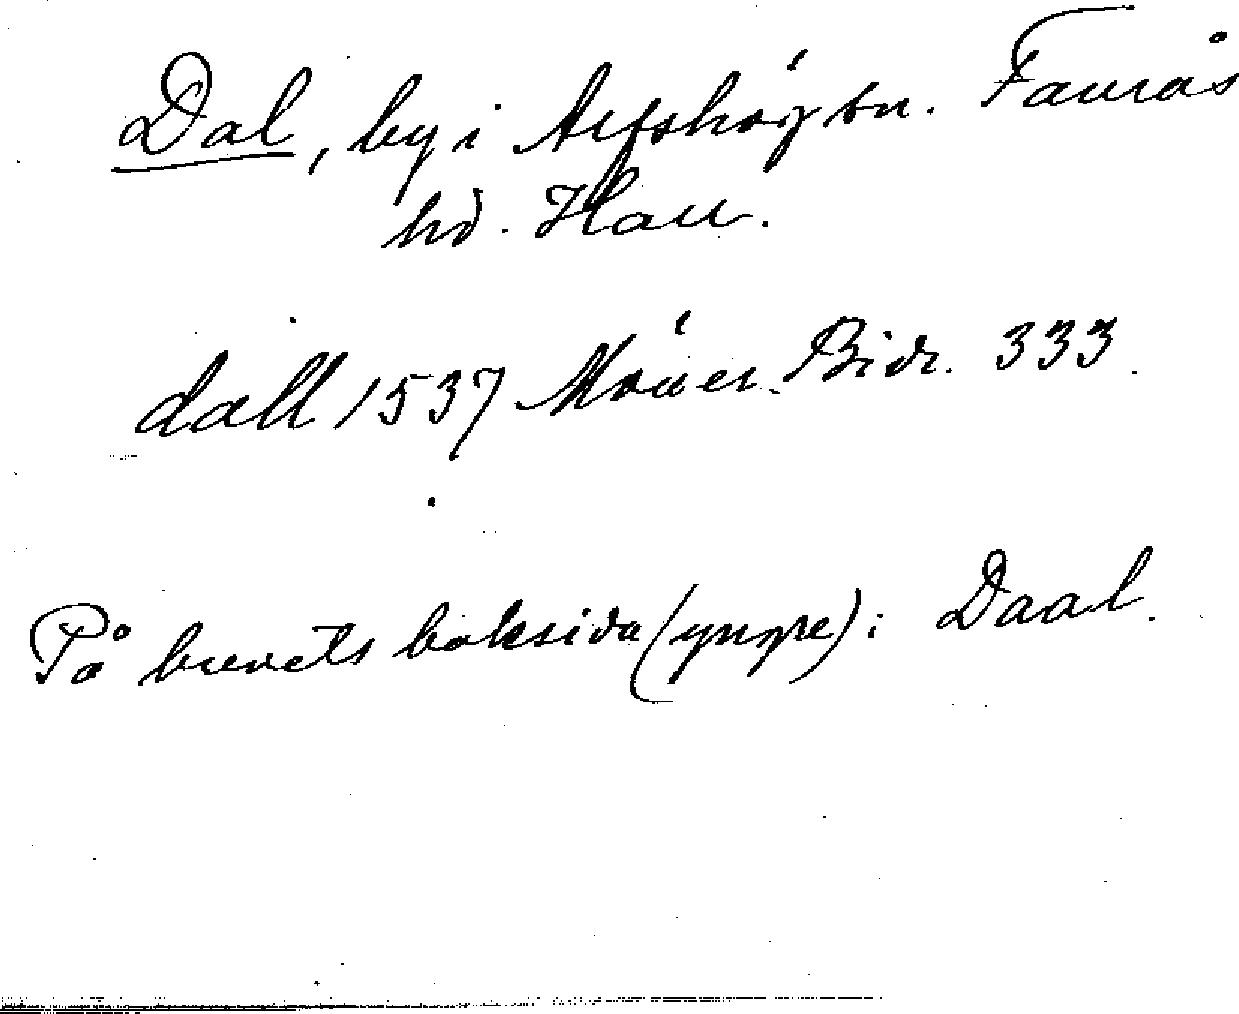 Dal, by i Alfshög sn. Faurås
hd. Hall.
dall 1537 Möller Bidr. 333.
På brevets baksida (yngre): Daal.